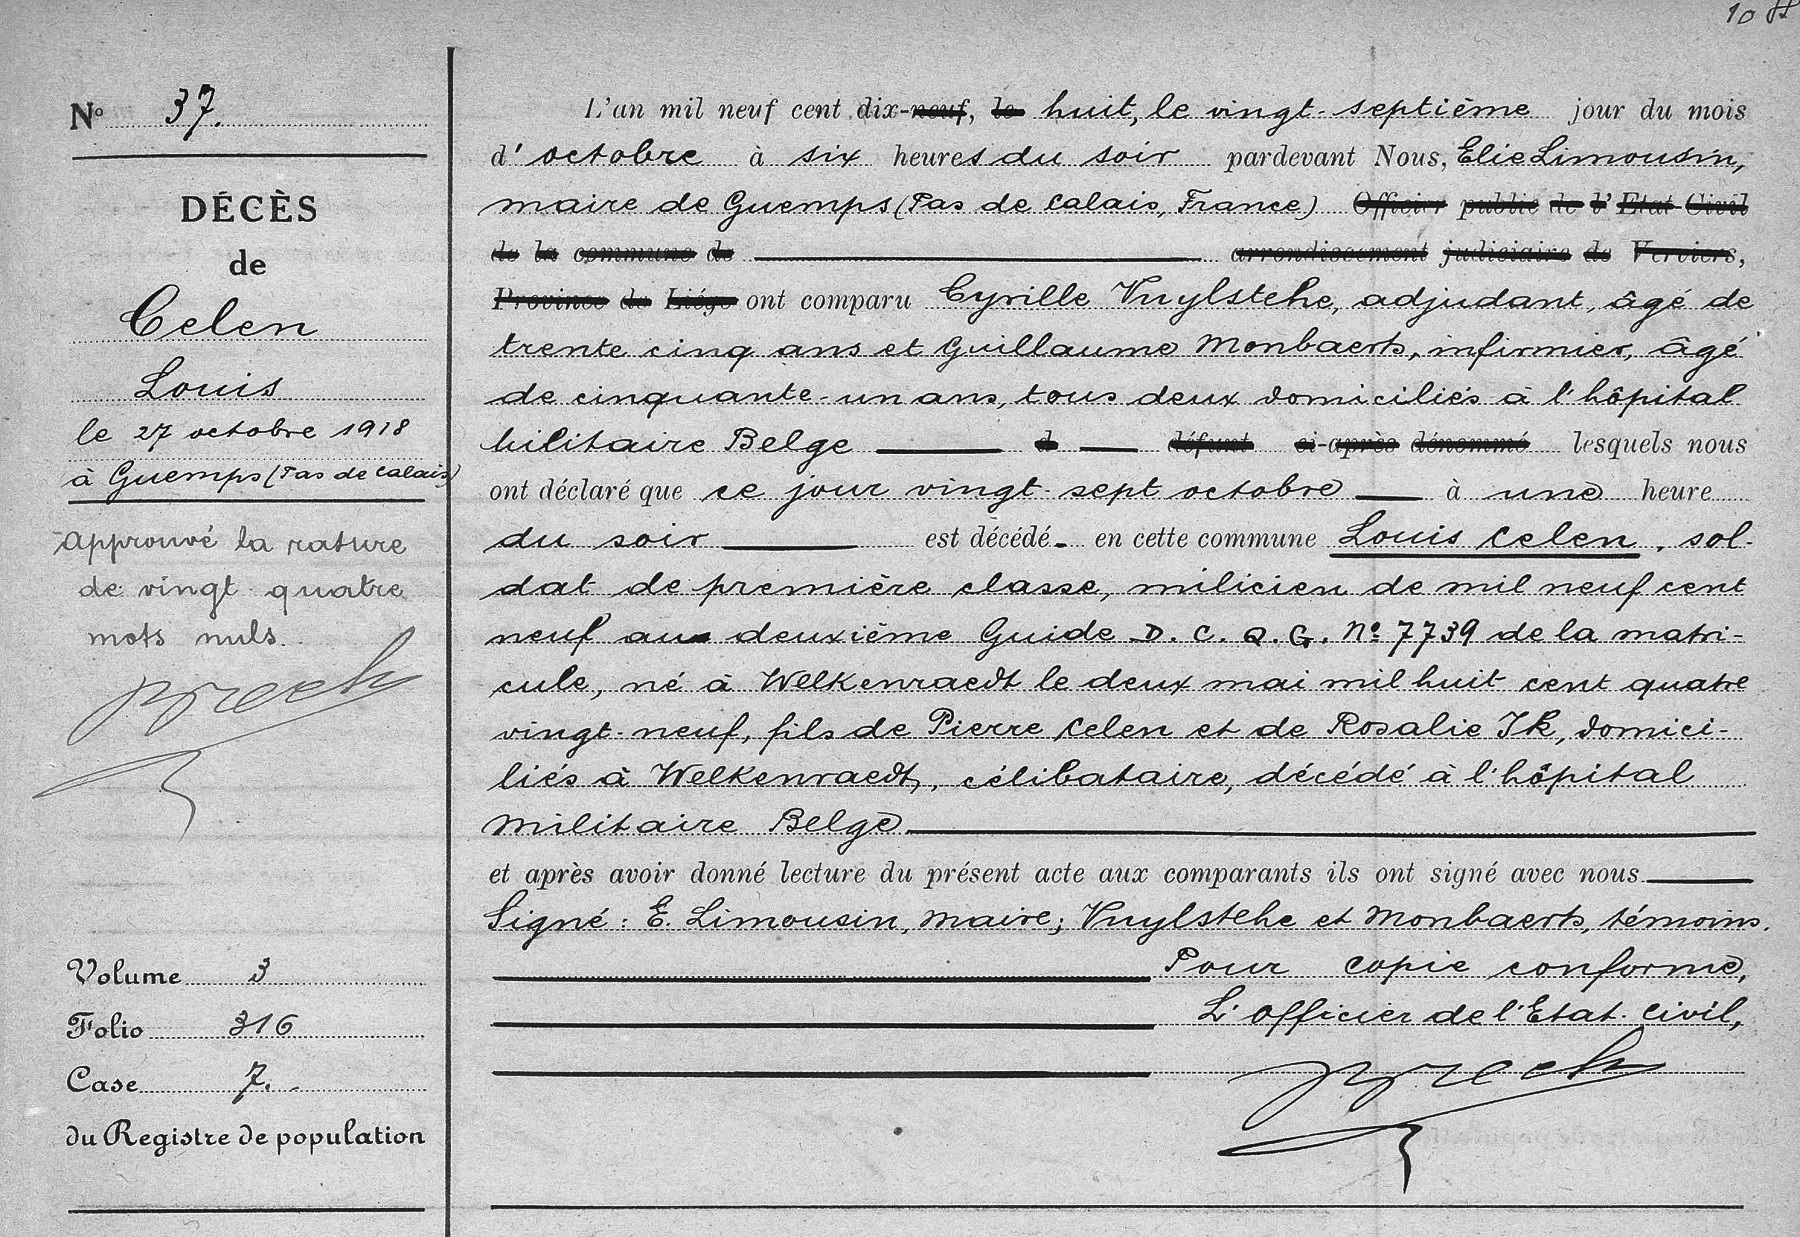 N° 37.
DÉCÈS
de
Celen
Louis
le 27 octobre 1918
à Guemps (Pas de Calais)
Approuvé la rature
de vingt quatre
mots nuls.
Volume 3
Folio 316
Case 7.
du Registre de population
L'an mil neuf cent dix-neuf, le huit, le vingt-septième jour du mois
d'octobre à six heures du soir pardevant Nous, Elie Limousin,
maire de Guemps (Pas de Calais, France) Officier public de l'Etat Civil
de la commune de arrondissement judiciaire de Verviers,
Province de Liége ont comparu Cyrille Vuylsteke, adjudant, âgé de
trente cinq ans et Guillaume Monbaerts, infirmier, âgé
de cinquante-un ans, tous deux domiciliés à l'hôpital
militaire Belge d défunt ci-après dénommé lesquels nous
ont déclaré que ce jour vingt-sept octobre à une heure
du soir est décédé en cette commune Louis Celen, sol-
dat de première classe, milicien de mil neuf cent
neuf au deuxième Guide D. C. Q. G. N° 7739 de la matri-
cule, né à Welkenraedt le deux mai mil huit cent quatre
vingt-neuf, fils de Pierre Celen et de Rosalie Ik, domici-
liés à Welkenraedt, célibataire, décédé à l'hôpital
militaire Belge
et après avoir donné lecture du présent acte aux comparants ils ont signé avec nous.
Signé : E. Limousin, maire; Vuylsteke et Monbaerts, témoins.
Pour copie conforme,
L'Officier de l'Etat Civil,